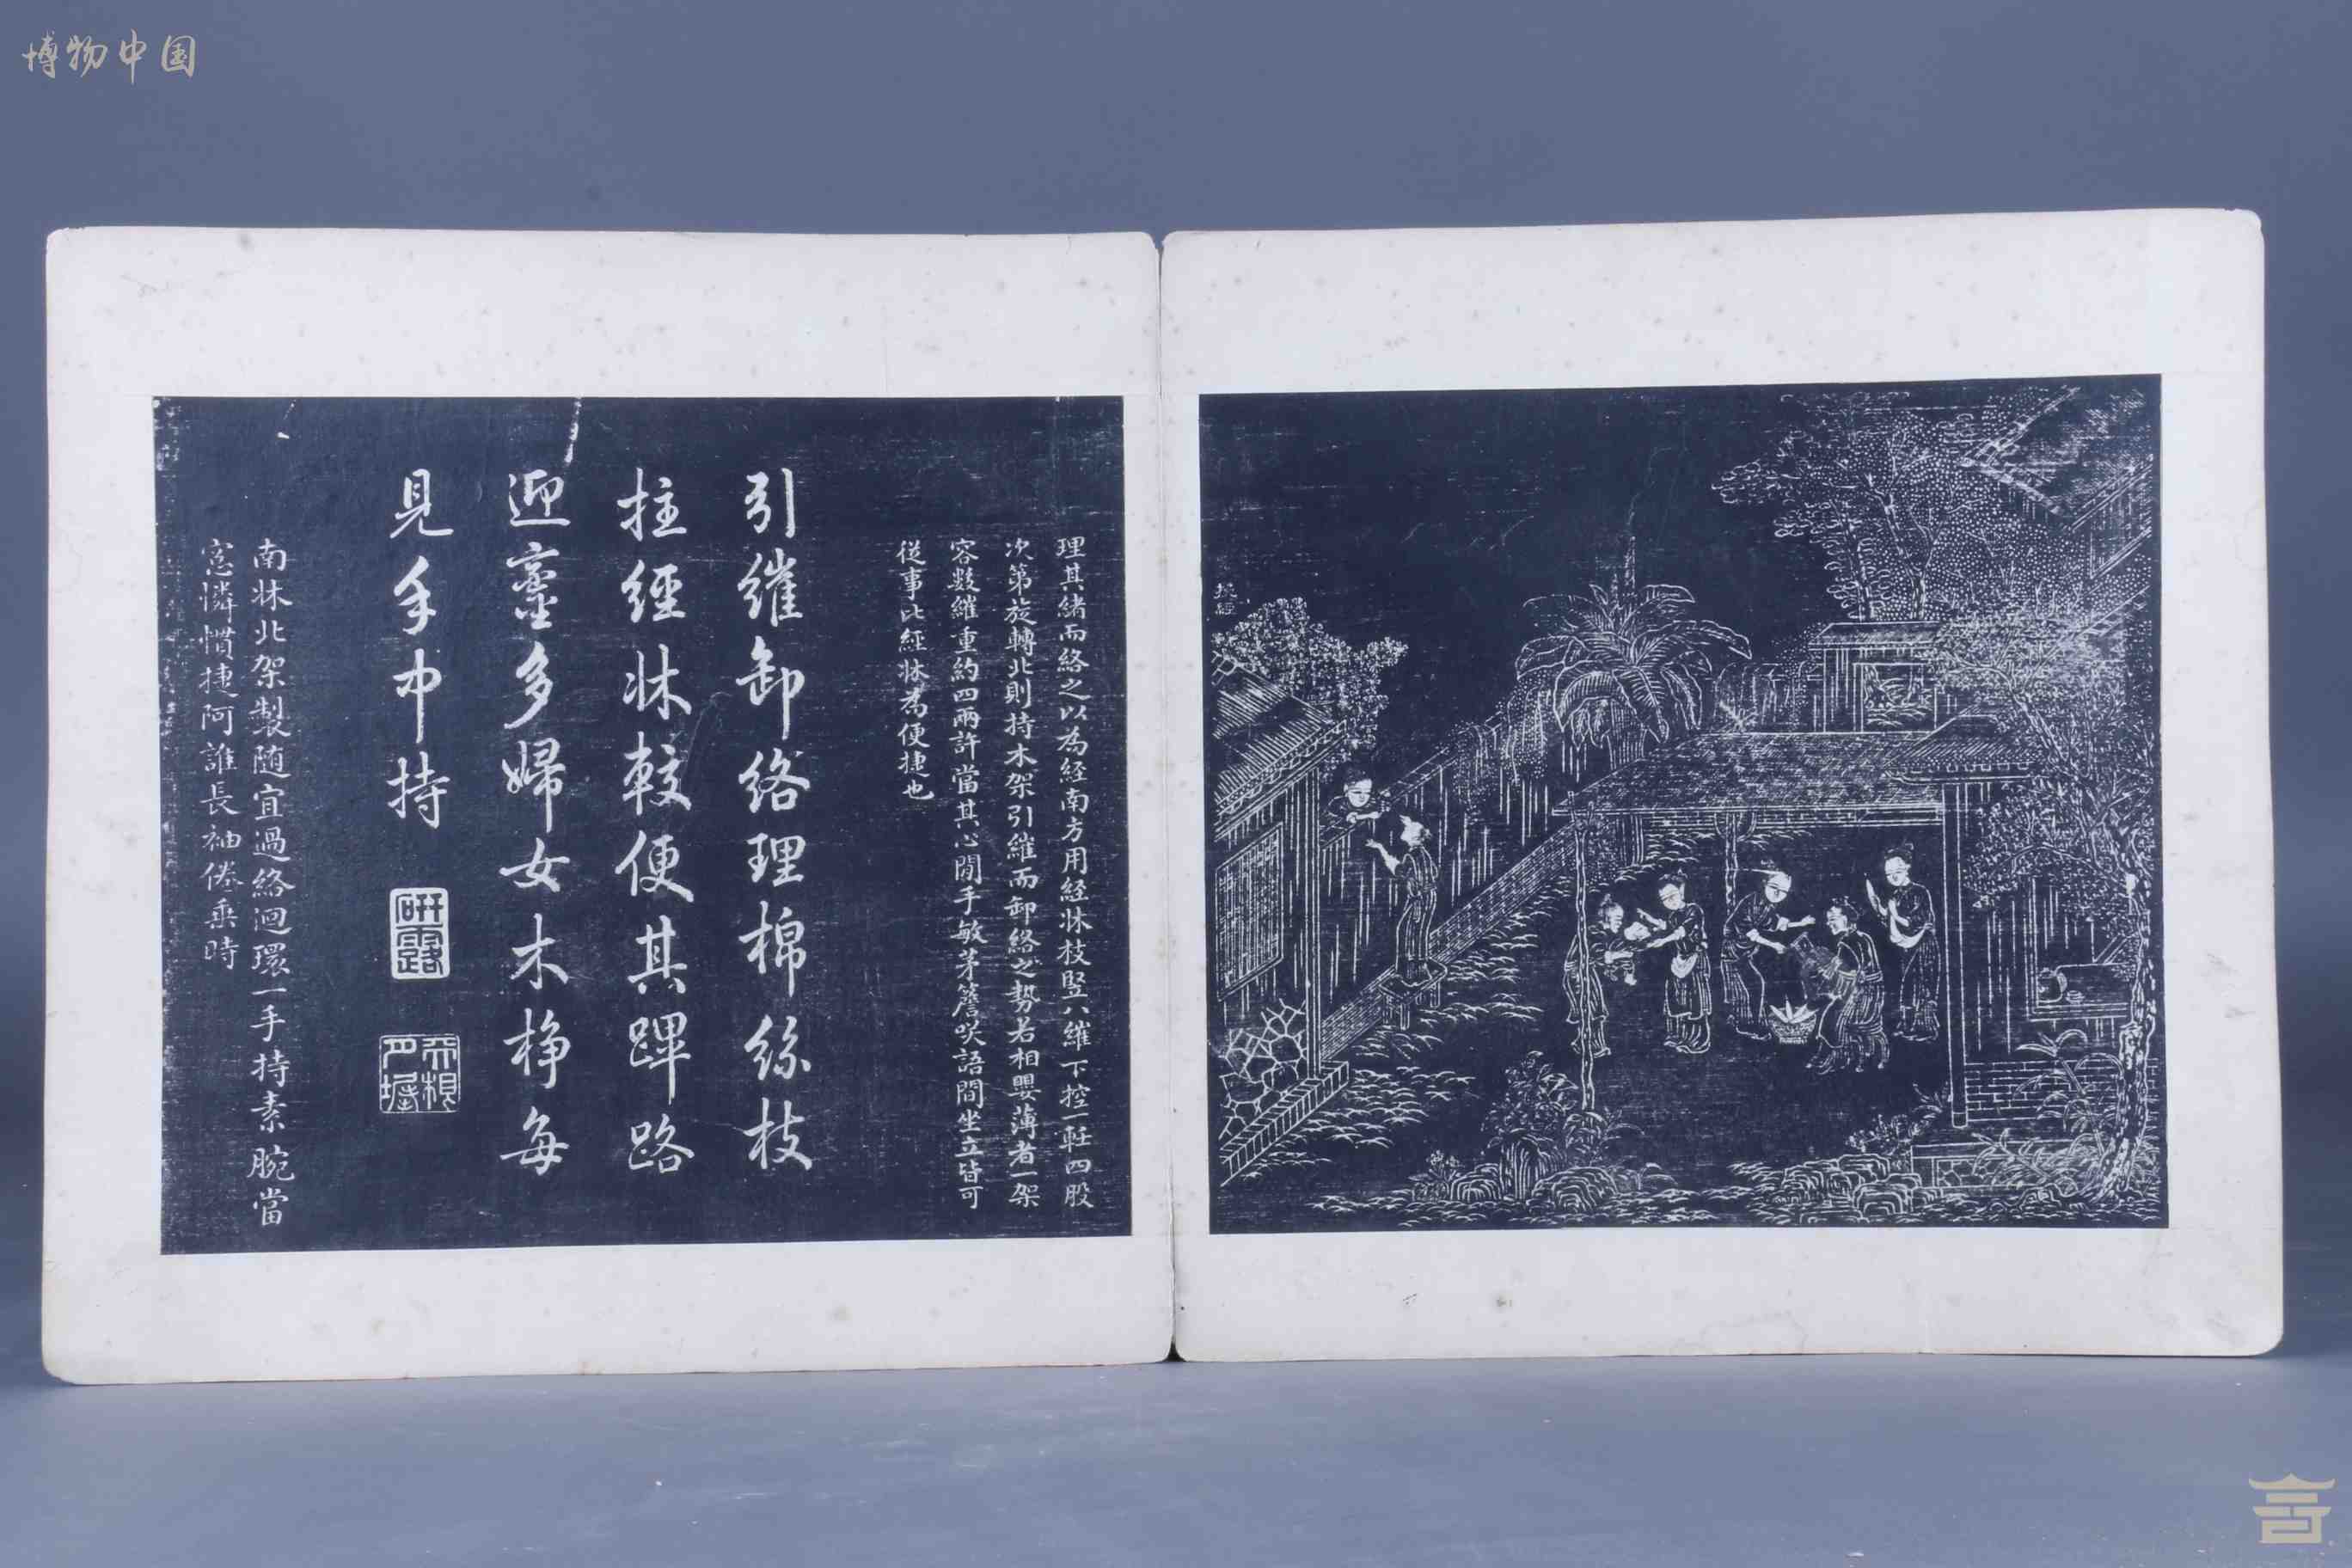 博物中国
挽經
理其緒而絡之以為経南方用経牀枝竪八繀下控一軖四股
次第旋轉北則持木架引繀而卸絡之勢若相嬰薄者一架
容數繀重約四兩許當其心閒手敏茅簷咲語間坐立皆可
從事比經牀為便捷也
引繀卸絡理棉絲枝
拄經牀較便其蹕路
迎鑾多婦女木棦每
見手中持
研露
天根月堀
南牀北架製随宜過絡迴環一手持素腕當
窓憐慣捷阿誰長袖倦垂時